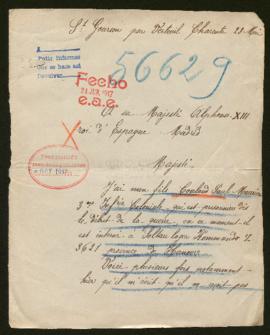 St Gourson par Verteuil Charente 28 Mai
Pedir informes
Que se hace así
56629
Fecho
21 JUN. 1917
e.a.e.
A sa Majesté Alphonse XIII
roi d'Espagne Madrid
X
OCT 1917
Majesté
J'ai mon fils Paul Maurice
37 Infrie Coloniale, qui est prisonnier dès
le début de la guerre, en ce moment il
est interné à Soltau lager Kommando Z
3621 province de Hanovre
Voici plusieurs fois notamment
hier qu'il m'écrit qu'il ne reçoit pas